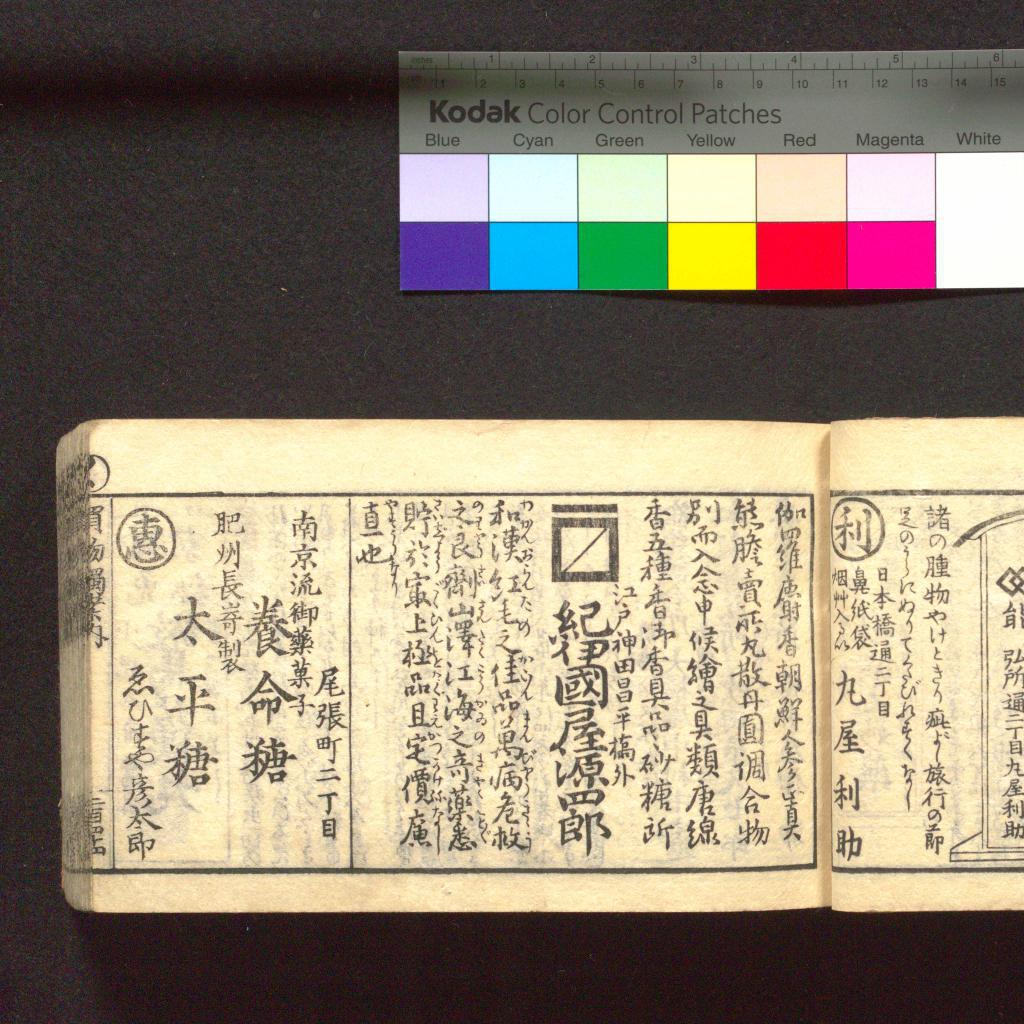 inches 1 2 3 4 5 6
1 2 3 4 5 6 7 8 9 10 11 12 13 14 15
Kodak Color Control Patches
Blue Cyan Green Yellow Red Magenta White
能
弘所通二丁目九屋利助
諸の腫物やけときり疵によし旅行の節
足のうらにぬりてくたびれすくなし
利
日本橋通二丁目
鼻紙袋
烟艸入るい
丸屋利助
伽羅麝香朝鮮人参正真
熊膽賣所丸散丹圓調合物
別而入念申候繪之具類唐線
香五種香御香具品々砂糖所
江戸神田昌平橋外
紀伊國屋源四郎
和漢紅毛之佳品萬病危救
之良劑山澤江海之奇薬悉
貯於家最上極品且定價廉
直也
尾張町二丁目
南京流御藥菓子
養命糖
肥州長嵜製
太平糖
惠
ゑひすや彦太郎
買物獨案内